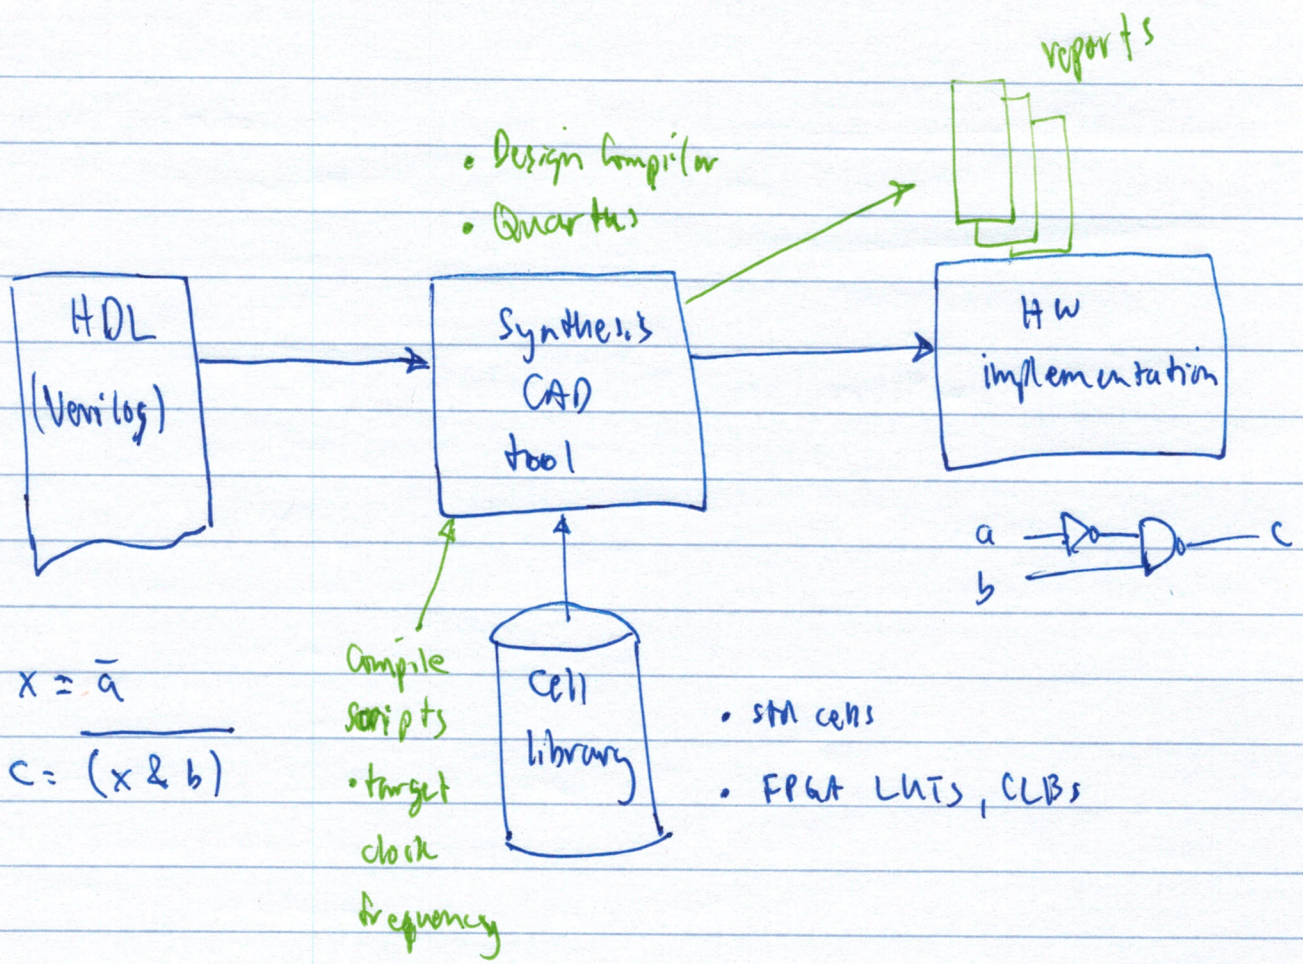 reports
• Design Compiler
• Quartus
HDL
(Verilog)
Synthesis
CAD
tool
HW
implementation
a
b
c
x = a̅
c = \overline{(x & b)}
Compile
scripts
• target
clock
frequency
Cell
library
• std cells
• FPGA LUTs, CLBs